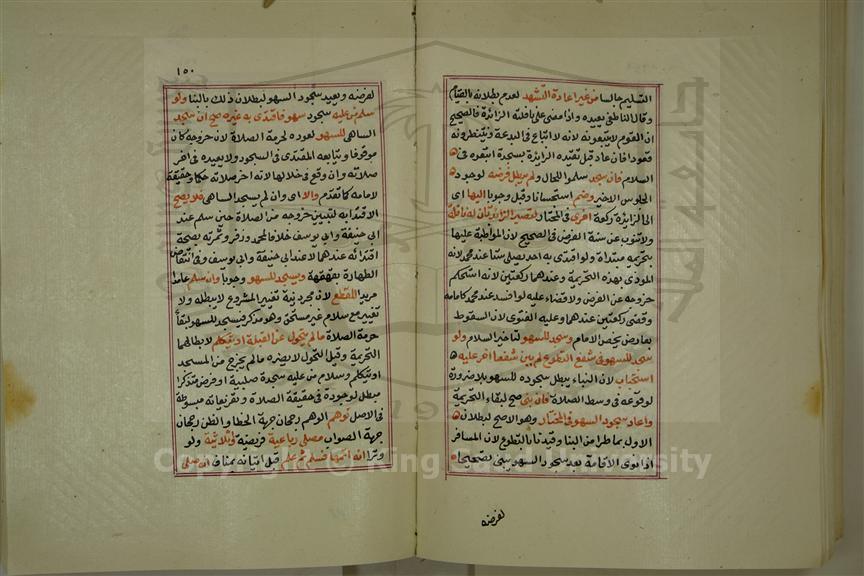 التسليم جالسا من غير اعادة التشهد لعدم بطلانه بالقيام
وقال الناطفي يعيده واذا مضى على نافلته الزائدة فالصحيح
ان القوم لا يتبعونه لانه لا اتباع في البدعة وينتظرونه
قعودا فان عاد قبل تقييده الزايدة بسجدة اتبعوه في
السلام فان سجد سلموا للحال ولم يبطل فرضه لوجود
الجلوس الاخير وضم استحسانا وقيل وجوبا اليها اى
الى الزايدة ركعة اخرى في المختار لتصير الزايدتان له نافلة
ولا تنوب عن سنة الفرض في الصحيح لان المواظبة عليها
بتحريمة مبتداة ولو اقتدى به احد يصلى ستا عند محمد لانه
المودى بهذه التحريمة وعندهما ركعتين لانه استحكم
خروجه عن الفرض ولا قضاء عليه لو افسد عند محمد كامامه
وقضى ركعتين عندهما وعليه الفتوى لان السقوط
بعارض يخص الامام وسجد للسهو لتاخير السلام ولو
سجد للسهو في شفع التطوع لم يبن شفعا اخر عليه
استحبابا لان البناء يبطل سجوده للسهو بلا ضرورة
لوقوعه في وسط الصلاة فان بنى صح لبقاء التحريمة
واعاد سجود السهو في المختار وهو الاصح لبطلان
الاول بما طرا من البنا وقيدنا بالتطوع لان المسافر
اذا نوى الاقامة بعد سجود السهو يبنى تصحيحا
لفرضه
١٥٠
لفرضه ويعيد سجود السهو لبطلان ذلك بالبنا ولو
سلم من عليه سجود سهو فاقتدى به غيره صح ان سجد
الساهى للسهو لعوده لحرمة الصلاة لان خروجه كان
موقوفا ويتابعه المقتدى في السجود ولا يعيده في اخر
صلاته وان وقع في خلالها لانه اخر صلاته حكما وحقيقة
لامامه كما تقدم والا اى وان لم يسجد الساهى فلا يصح
الاقتدا به لتبين خروجه من الصلاة حين سلم عند
ابى حنيفة وابى يوسف خلافا لمحمد وزفر وثمرته بصحة
اقتدائه عندهما لا عند ابى حنيفة وابى يوسف وفى انتقاض
الطهارة بقهقهة ويسجد للسهو وجوبا وان سلم عامدا
مريدا للقطع لان مجرد نية تغيير المشروع لا يبطله ولا
تغيير مع سلام غير مستحق وهو ذكر فيسجد للسهو لبقاء
حرمة الصلاة مالم يتحول عن القبلة او يتكلم لابطالهما
التحريمة وقيل التحول لا يضره مالم يخرج من المسجد
او يتكلم وسلام من عليه سجدة صلبية او فرض متذكرا
مبطل لوجوده في حقيقة الصلاة وتفريعاته مبسوطة
في الاصل توهم الوهم رجحان جهة الخطا والظن رجحان
جهة الصواب مصلى رباعية فريضة او ثلاثية ولو
وترا انه اتمها فسلم ثم علم قبل اتيانه بمناف انه صلى
Copyright © King Saud University